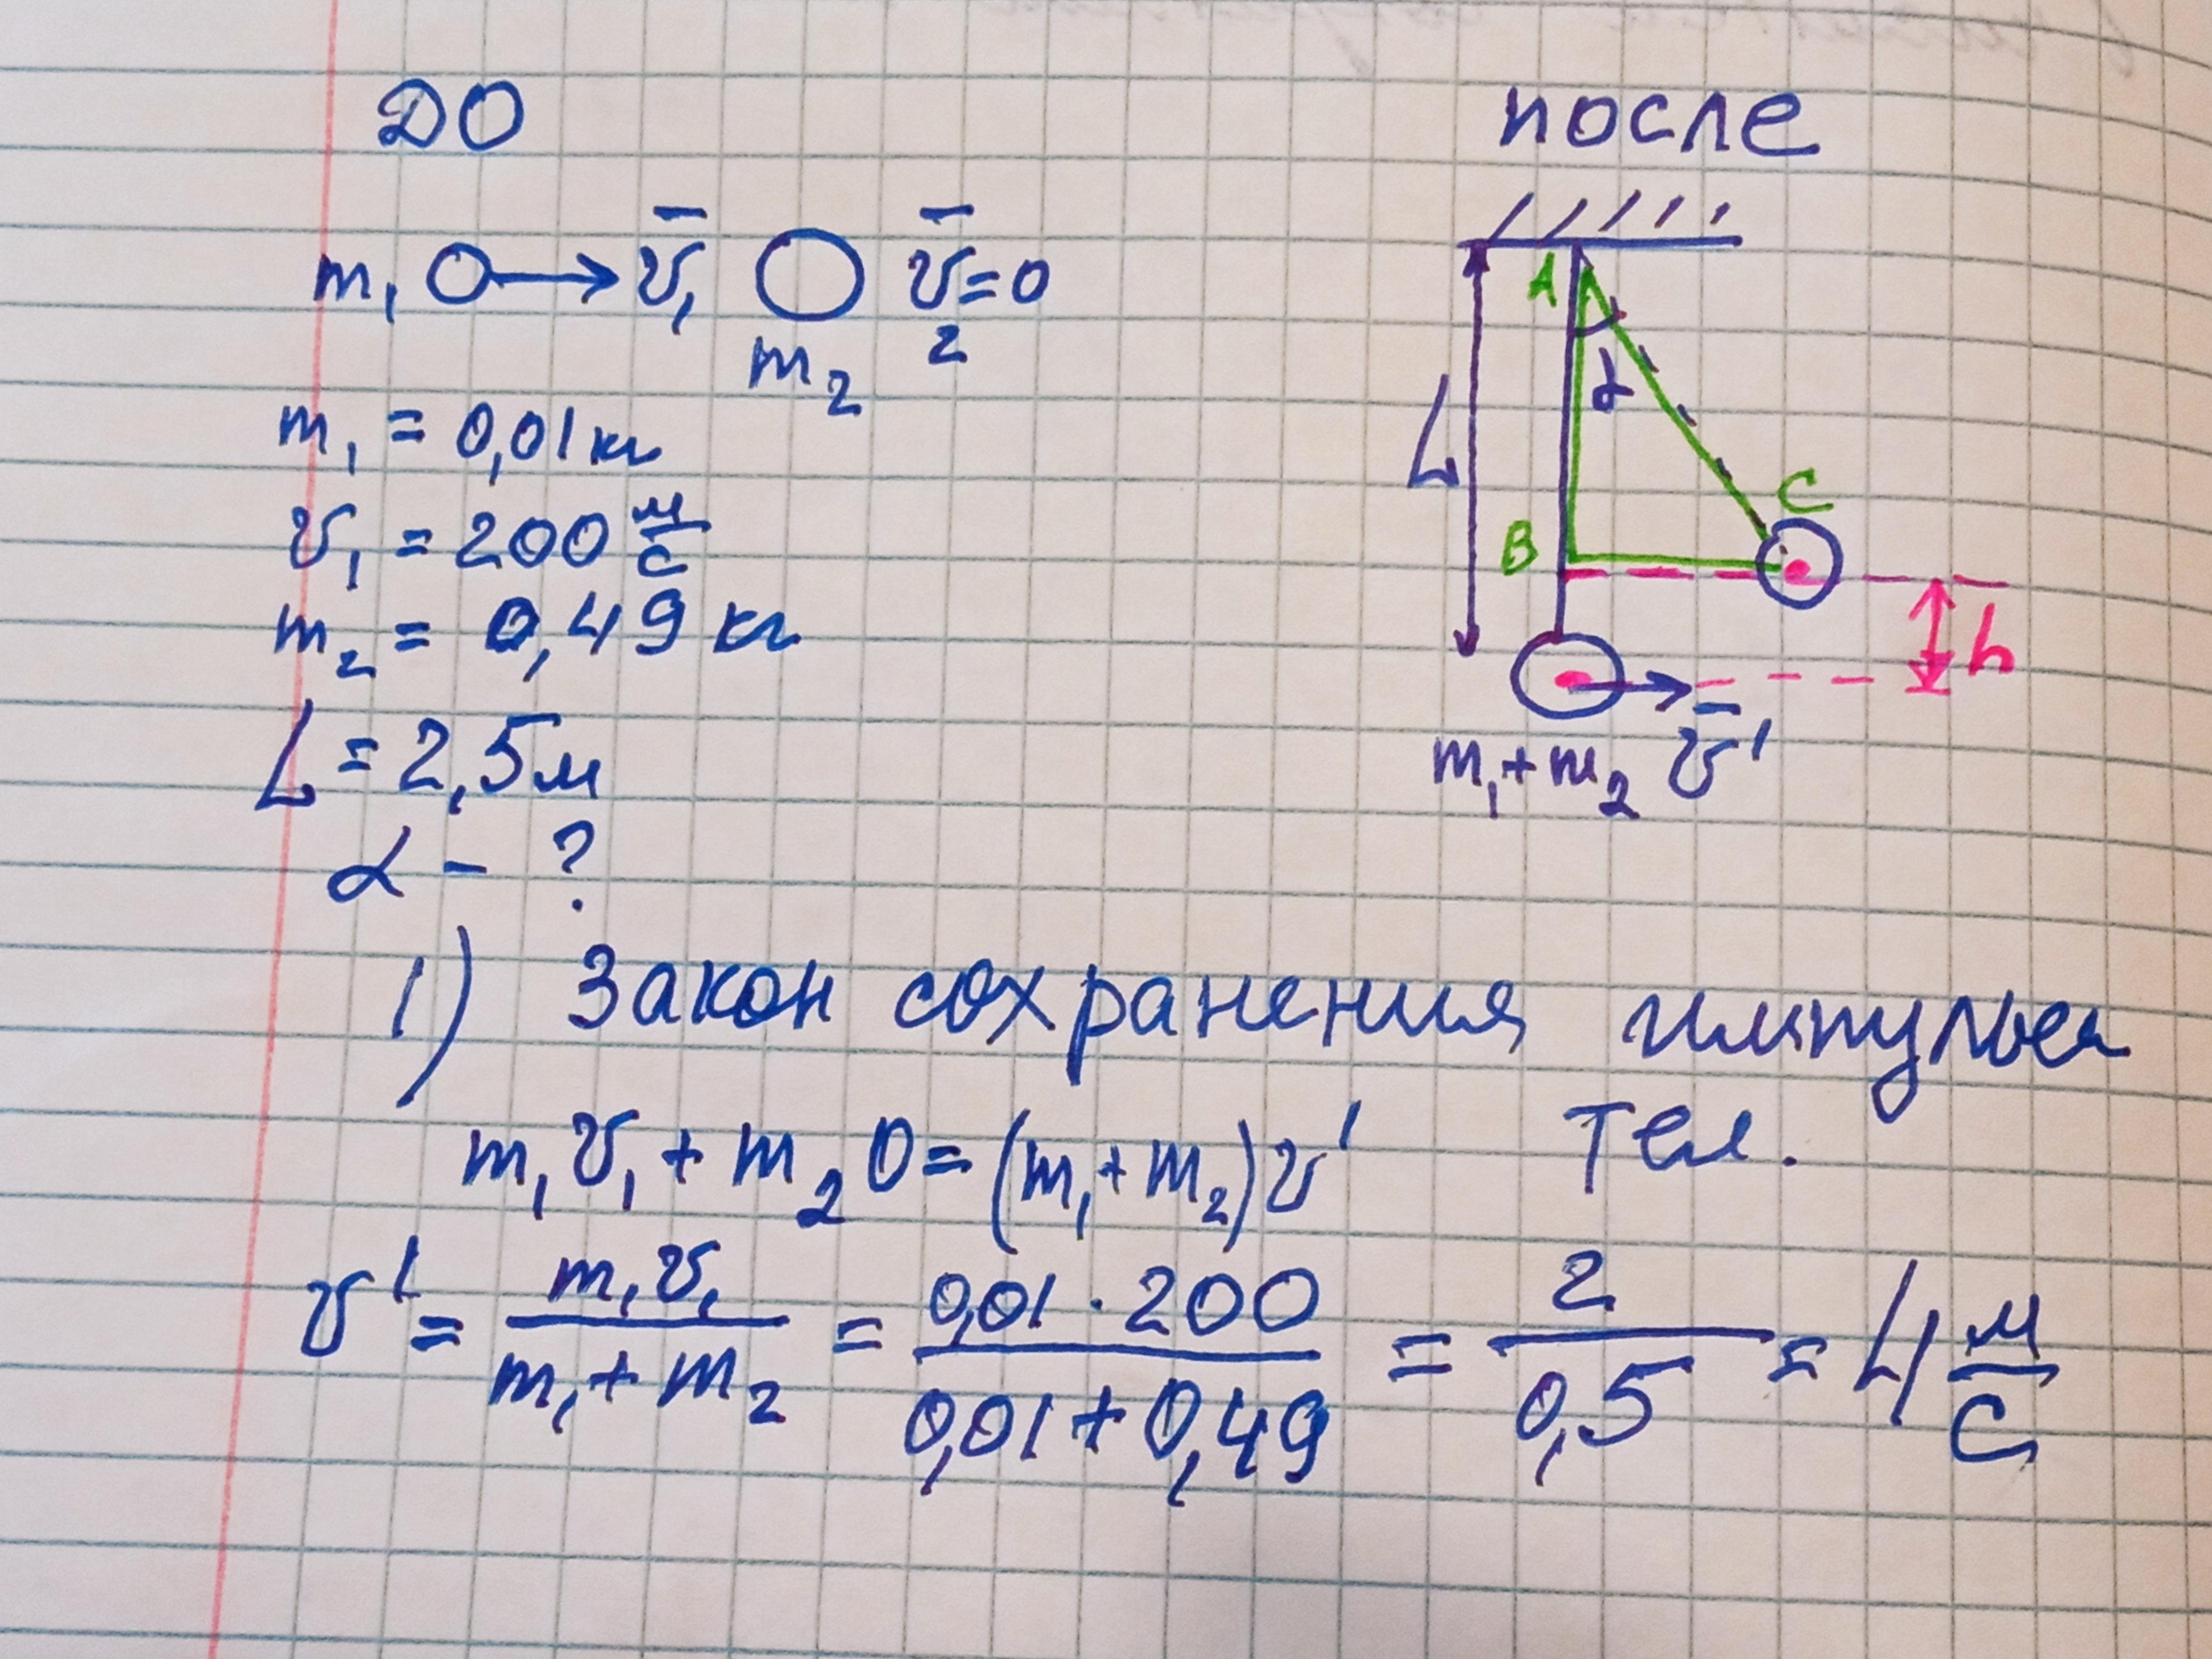 ДО
после
m₁ v̄₁ v̄₂=0
m₂
m₁ = 0,01 кг
v₁ = 200 м/с
m₂ = 0,49 кг
L = 2,5 м
α - ?
A
α
L
C
B
h
m₁+m₂ v̄'
1) Закон сохранения импульса
тел.
m₁v₁ + m₂0 = (m₁+m₂)v'
v' = m₁v₁/(m₁+m₂) = 0,01·200/(0,01+0,49) = 2/0,5 = 4 м/с